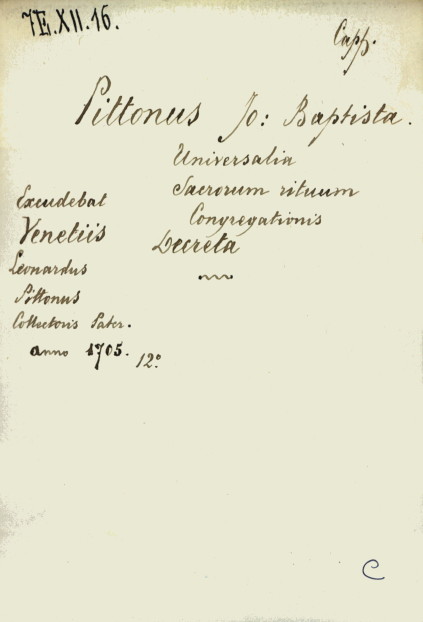 7E.XII.16.
Capp.
Pittonus Jo: Baptista.
Universalia
Sacrorum rituum
Congregationis
Decreta
Excudebat
Venetiis
Leonardus
Pittonus
Collectoris Pater.
anno 1705.
12°
C